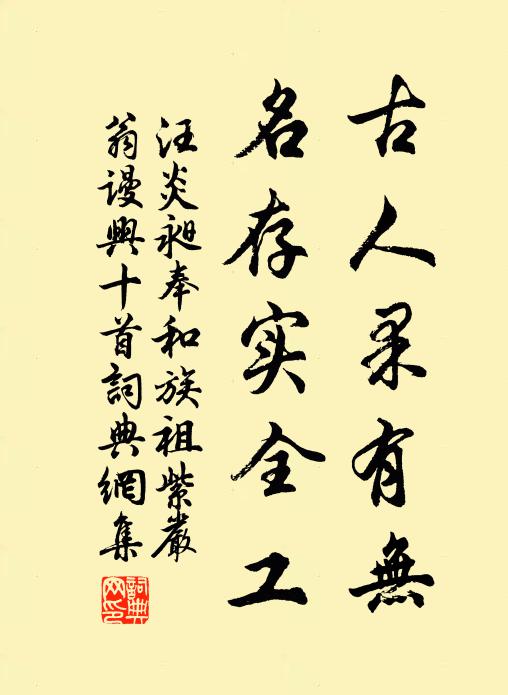 古人果有無
名存实全工
汪炎昶奉和族祖紫巖
翁謾興十首詞典網集
詞典网印